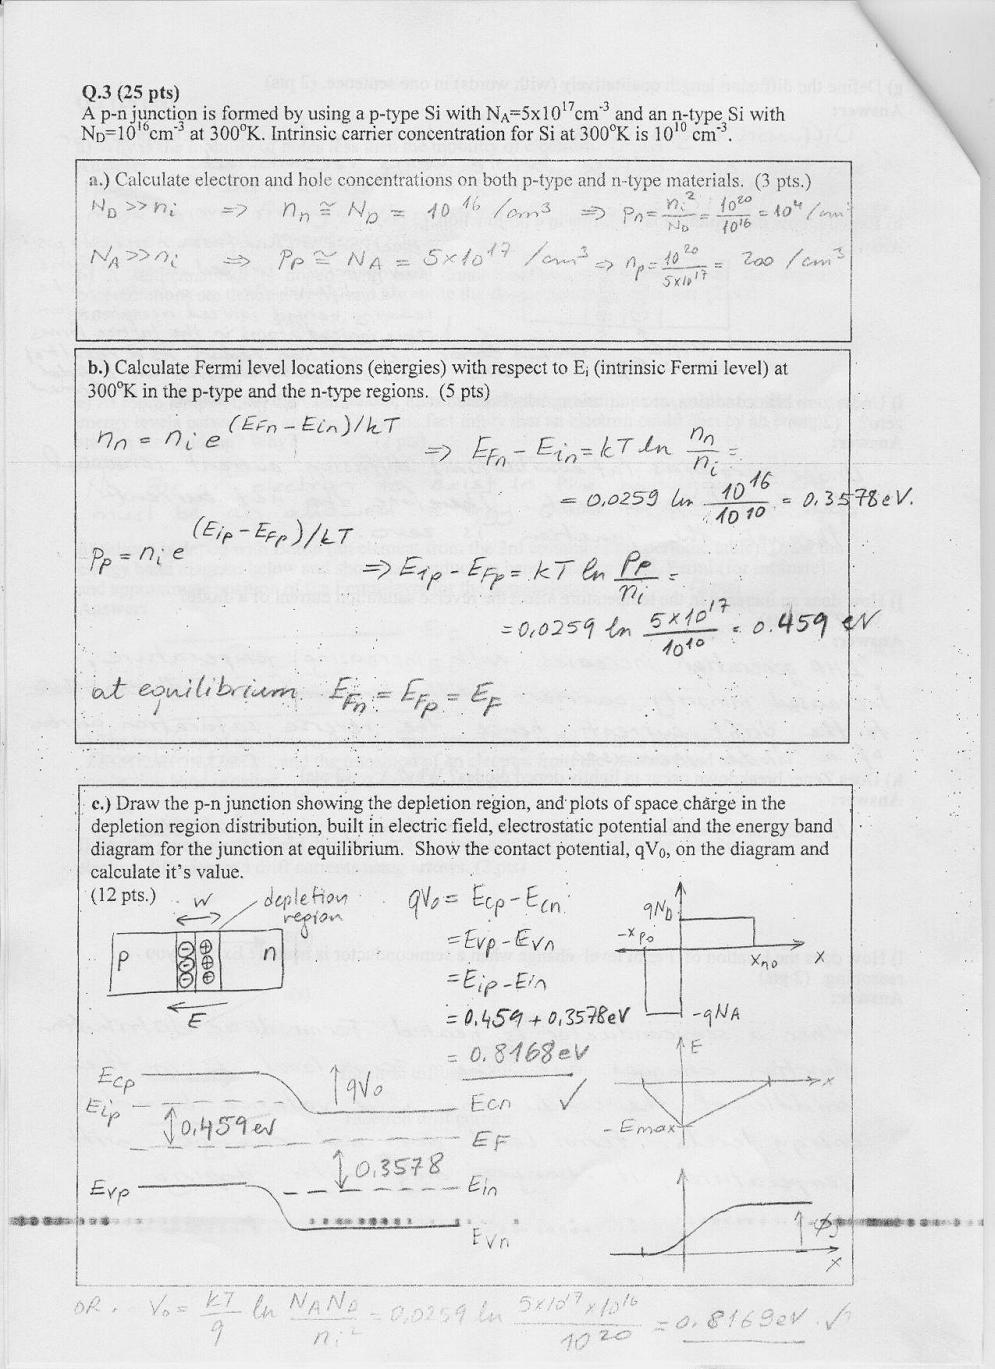 Q.3 (25 pts)
A p-n junction is formed by using a p-type Si with N_A=5x10^17cm^-3 and an n-type Si with
N_D=10^16cm^-3 at 300°K. Intrinsic carrier concentration for Si at 300°K is 10^10 cm^-3.
a.) Calculate electron and hole concentrations on both p-type and n-type materials. (3 pts.)
N_D >> n_i ⇒ n_n ≅ N_D = 10^16 /cm^3 ⇒ P_n = n_i^2/N_D = 10^20/10^16 = 10^4 /cm^3
N_A >> n_i ⇒ P_p ≅ N_A = 5x10^17 /cm^3 ⇒ n_p = 10^20/5x10^17 = 200 /cm^3
b.) Calculate Fermi level locations (energies) with respect to E_i (intrinsic Fermi level) at
300°K in the p-type and the n-type regions. (5 pts)
n_n = n_i e^(E_Fn - E_in)/kT ⇒ E_Fn - E_in = kT ln n_n/n_i =
= 0,0259 ln 10^16/10^10 = 0.3578 eV.
P_p = n_i e^(E_ip - E_Fp)/kT
⇒ E_ip - E_Fp = kT ln P_p/n_i =
= 0,0259 ln 5x10^17/10^10 = 0.459 eV
at equilibrium E_Fn = E_Fp = E_F
c.) Draw the p-n junction showing the depletion region, and plots of space charge in the
depletion region distribution, built in electric field, electrostatic potential and the energy band
diagram for the junction at equilibrium. Show the contact potential, qV_0, on the diagram and
calculate it's value.
(12 pts.)
W
depletion
region
p
n
E
qV_0 = E_cp - E_cn
= E_vp - E_vn
= E_ip - E_in
= 0.459 + 0,3578 eV
= 0.8168 eV ✓
qN_D
-x_p0
x_n0
x
-qN_A
E
x
-Emax
E_cp
E_ip
0,459 ev
qV_0
E_cn
E_F
0,3578
E_vp
E_in
E_vn
x
OR. V_0 = kT/q ln N_A N_D/n_i^2 = 0,0259 ln 5x10^17 x 10^16/10^20 = 0.8169 eV. ✓